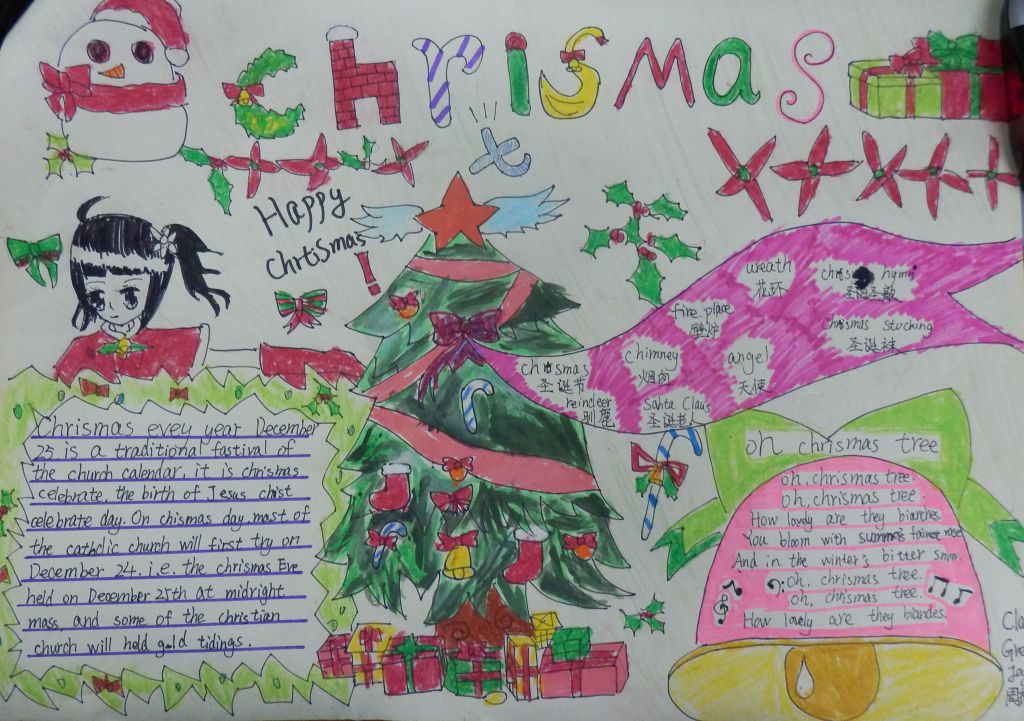 chrismas
t
Happy
Chrtismas!
wreath
花环
chris hymn
圣诞圣歌
fire place
壁炉
Chrismas stocking
圣诞袜
chimney
烟囱
angel
天使
christmas
圣诞节
reindeer
驯鹿
Santa Claus
圣诞老人
Chrismas evey year December
25 is a traditional fastival of
the church calendar, it is chrismas
celebrate, the birth of Jesus christ
celebrate day. On chismas day, mast of
the catholic church will first try on
December 24. i.e. the chrismas Eve
held on December 25th at midnight
mass, and some of the christian
church will hold gold tidings.
oh chrismas tree
oh, chrismas tree.
Oh, chrismas tree.
How lovely are they bianches.
You bloom with summer's
And in the winter's bitter snow.
Oh, chrismas tree.
Oh, chrismas tree.
How lovely are they biandes.
Cla
Gre